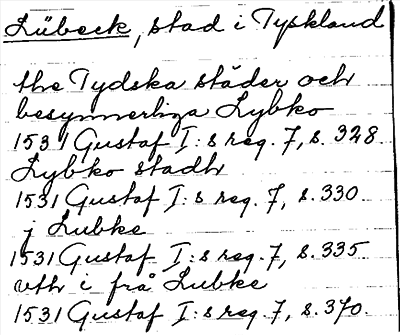 Lübeck, stad i Tyskland
the Tydska städer och
besynnerliga Lybko
1531 Gustaf I:s reg. 7, s. 328
Lybko stadh
1531 Gustaf I:s reg. 7, s. 330
j Lubke
1531 Gustaf I:s reg. 7, s. 335
vth i frå Lubke
1531 Gustaf I:s reg. 7, s. 370.